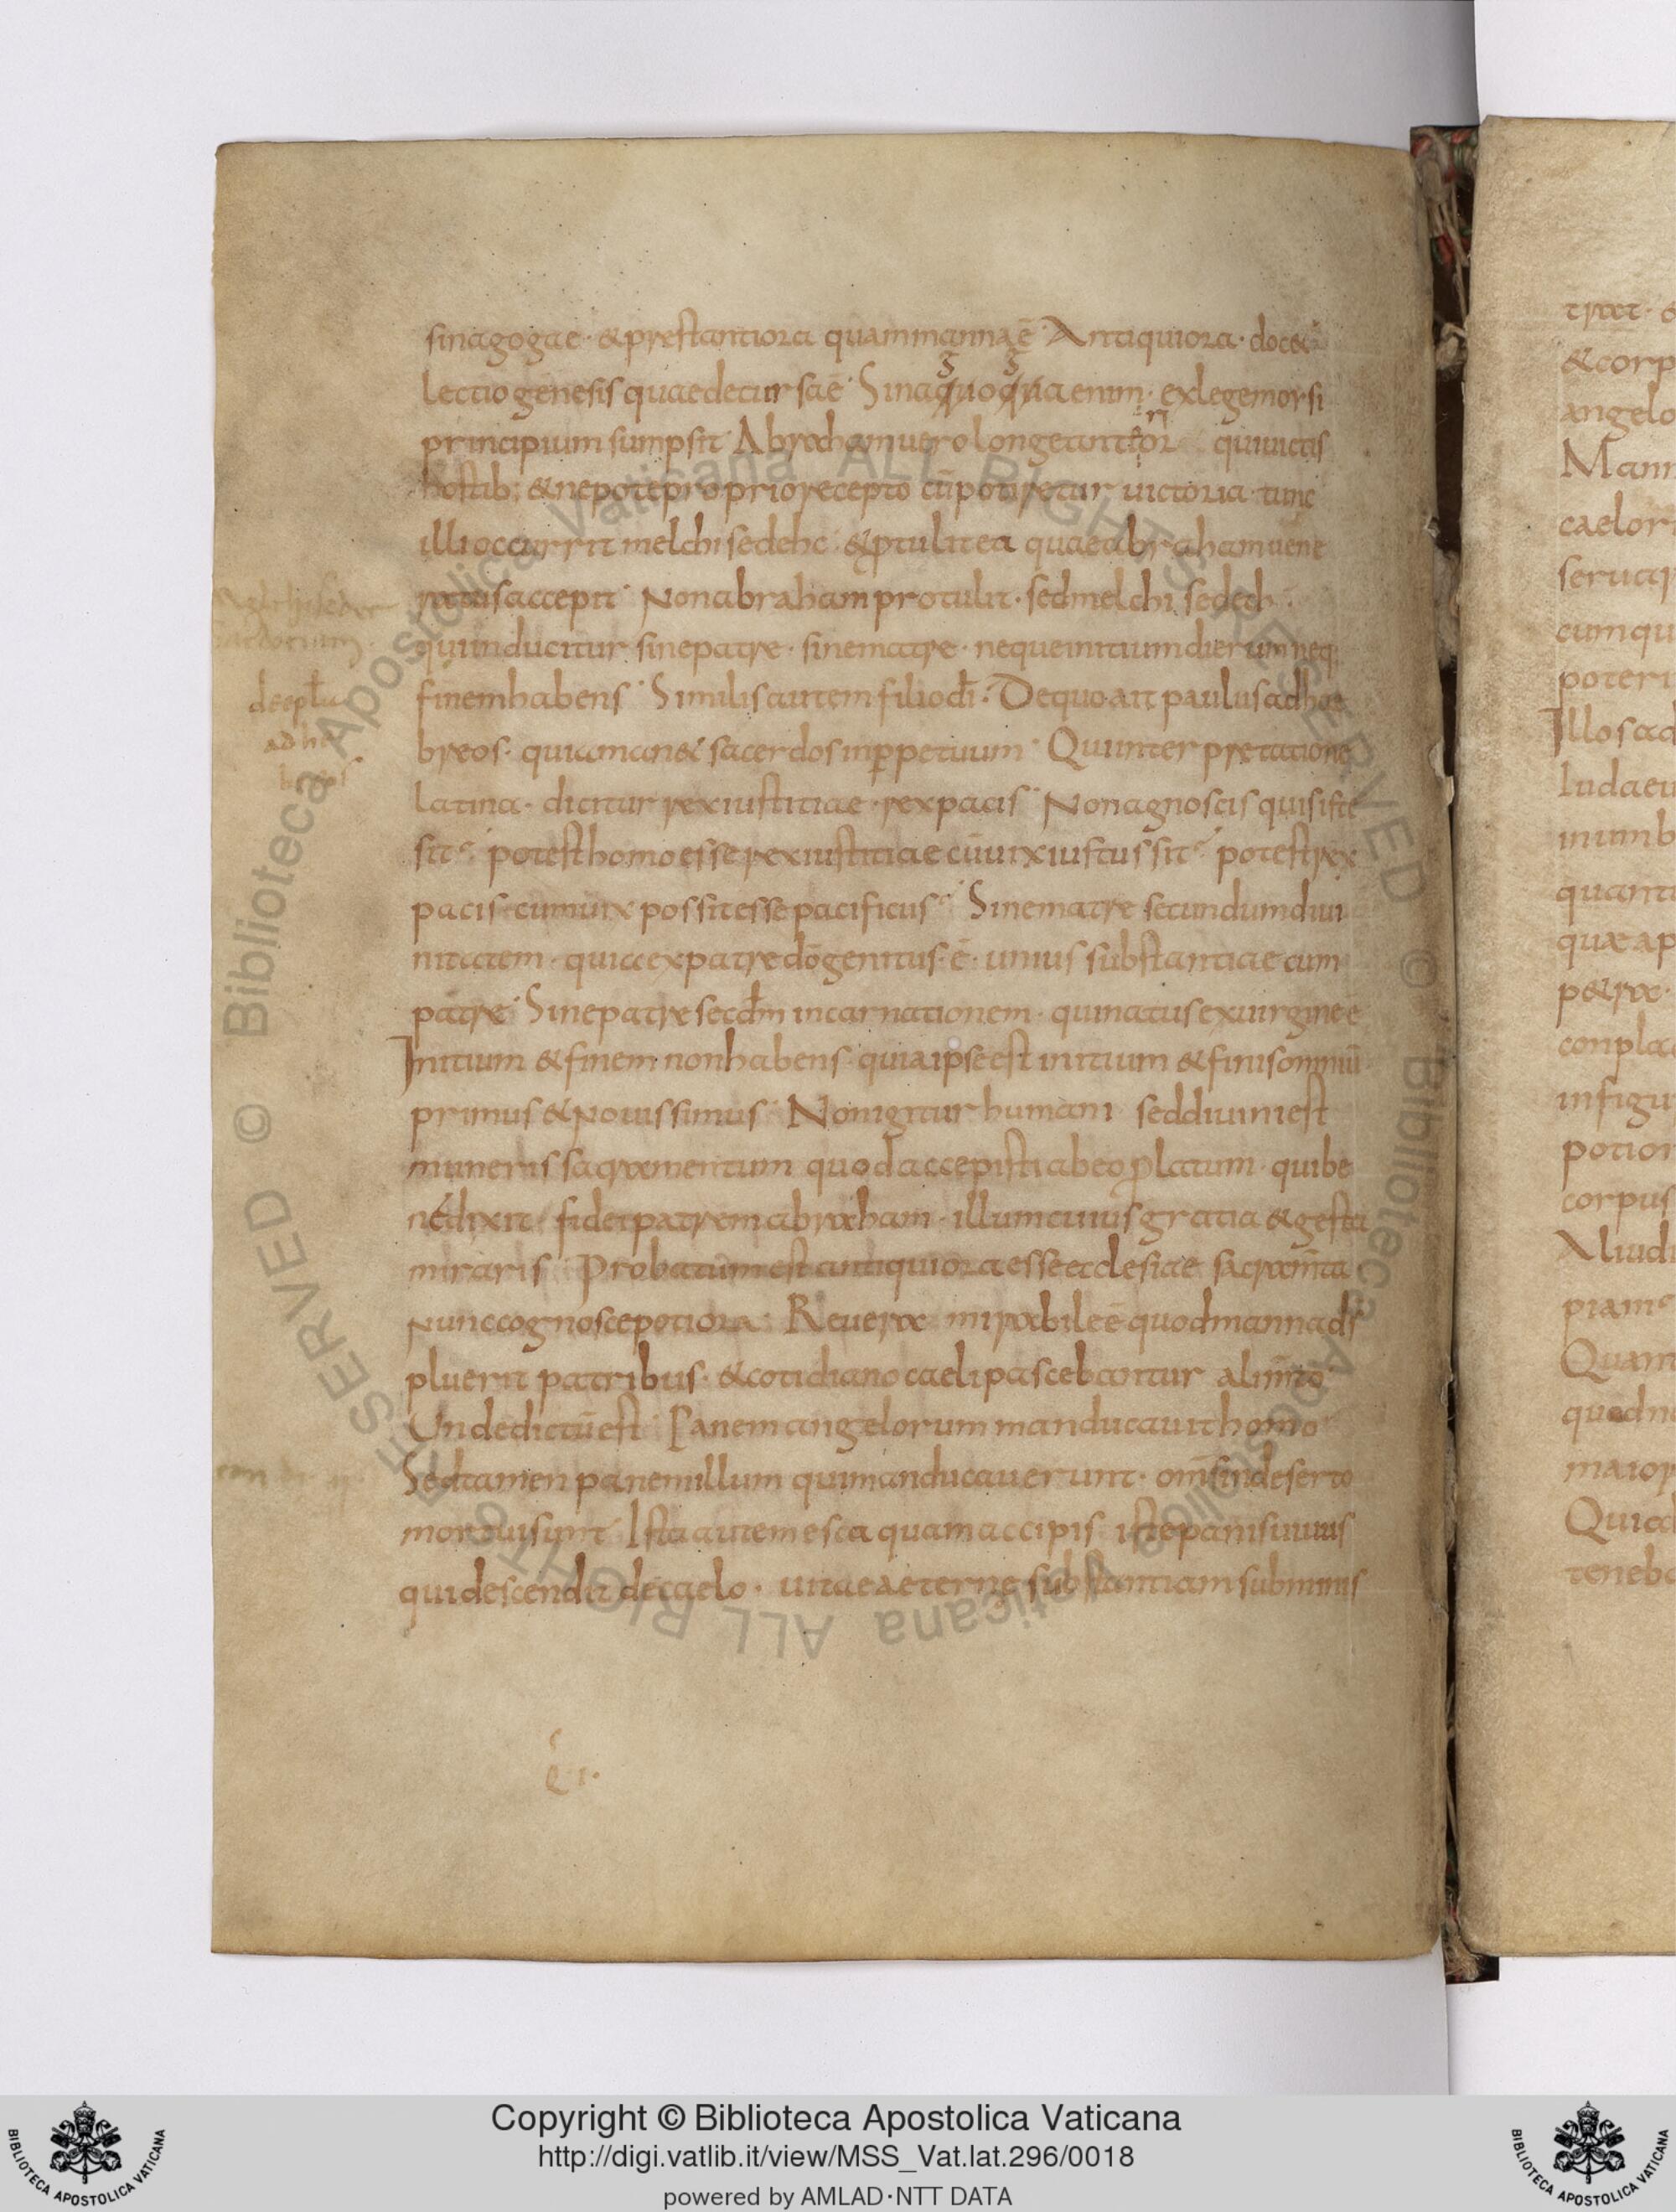 sinagogae · & prestantiora quam manna ē · Antiquiora · doc&
lectio genesis quae decursa ē · Sinaquoqua enim · ex lege morsi
g g
principium sumpsit · Abraham vero longe anterior qui uictis
hostib; & nepote proprio recepto cū potiretur uictoria · tunc
illi occurrit melchisedehc · & ptulit ea quae abraham uene
ratus accepit · Non abraham protulit · sed melchisedech ·
qui inducitur sine patre · sine matre · neque initium dierum neq;
finem habens · Similis autem filio dī · De quo ait paulus ad hae
breos · quia man& sacerdos in ppetuum · Qui interpretatione
latina · dicitur rex iustitiae · rex pacis · Non agnoscis quis iste
sit · potest homo esse rex iustitiae cū uix iustus sit · potest rex
pacis cum uix possit esse pacificus · Sine matre secundum diui
nitatem · quia ex patre dō genitus · ē · unius substantiae cum
patre · Sine patre secdm incarnationem · qui natus ex uirgine ē
Initium & finem non habens · quia ipse est initium & finis omniū
primus & nouissimus · Non igitur humani sed diuini est
muneris sacramentum quod accepisti ab eo platum · qui be
nedixit fidei patrem abraham · illum cuius gratia & gesta
miraris · Probatum est antiquiora esse ecclesiae sacramta
nunc cognosce potiora · Reuera mirabile ē quod manna ds
pluerit patribus · & cotidiano caeli pascebantur alimto
Unde dictū est · Panem angelorum manducauit homo
Sed tamen panem illum qui manducauerunt · oms in deserto
mortui sunt · Ista autem esca quam accipis iste panis uiuus
qui descendit de caelo · uitae aeterne substantiam subminis
de epla
ad he
Copyright © Biblioteca Apostolica Vaticana
http://digi.vatlib.it/view/MSS_Vat.lat.296/0018
powered by AMLAD·NTT DATA
BIBLIOTECA APOSTOLICA VATICANA
BIBLIOTECA APOSTOLICA VATICANA
© Biblioteca Apostolica Vaticana ALL RIGHTS RESERVED © Biblioteca Apostolica Vaticana ALL RIGHTS RESERVED
& corp
angelo
Mann
caelor
seruar
cumqu
poteri
Illos ad
Iudaeu
numb
quant
quae ap
p&ra
conplac
infigu
potior
corpus
Aliud
piam
Quam
quod n
maior
Quia
teneb